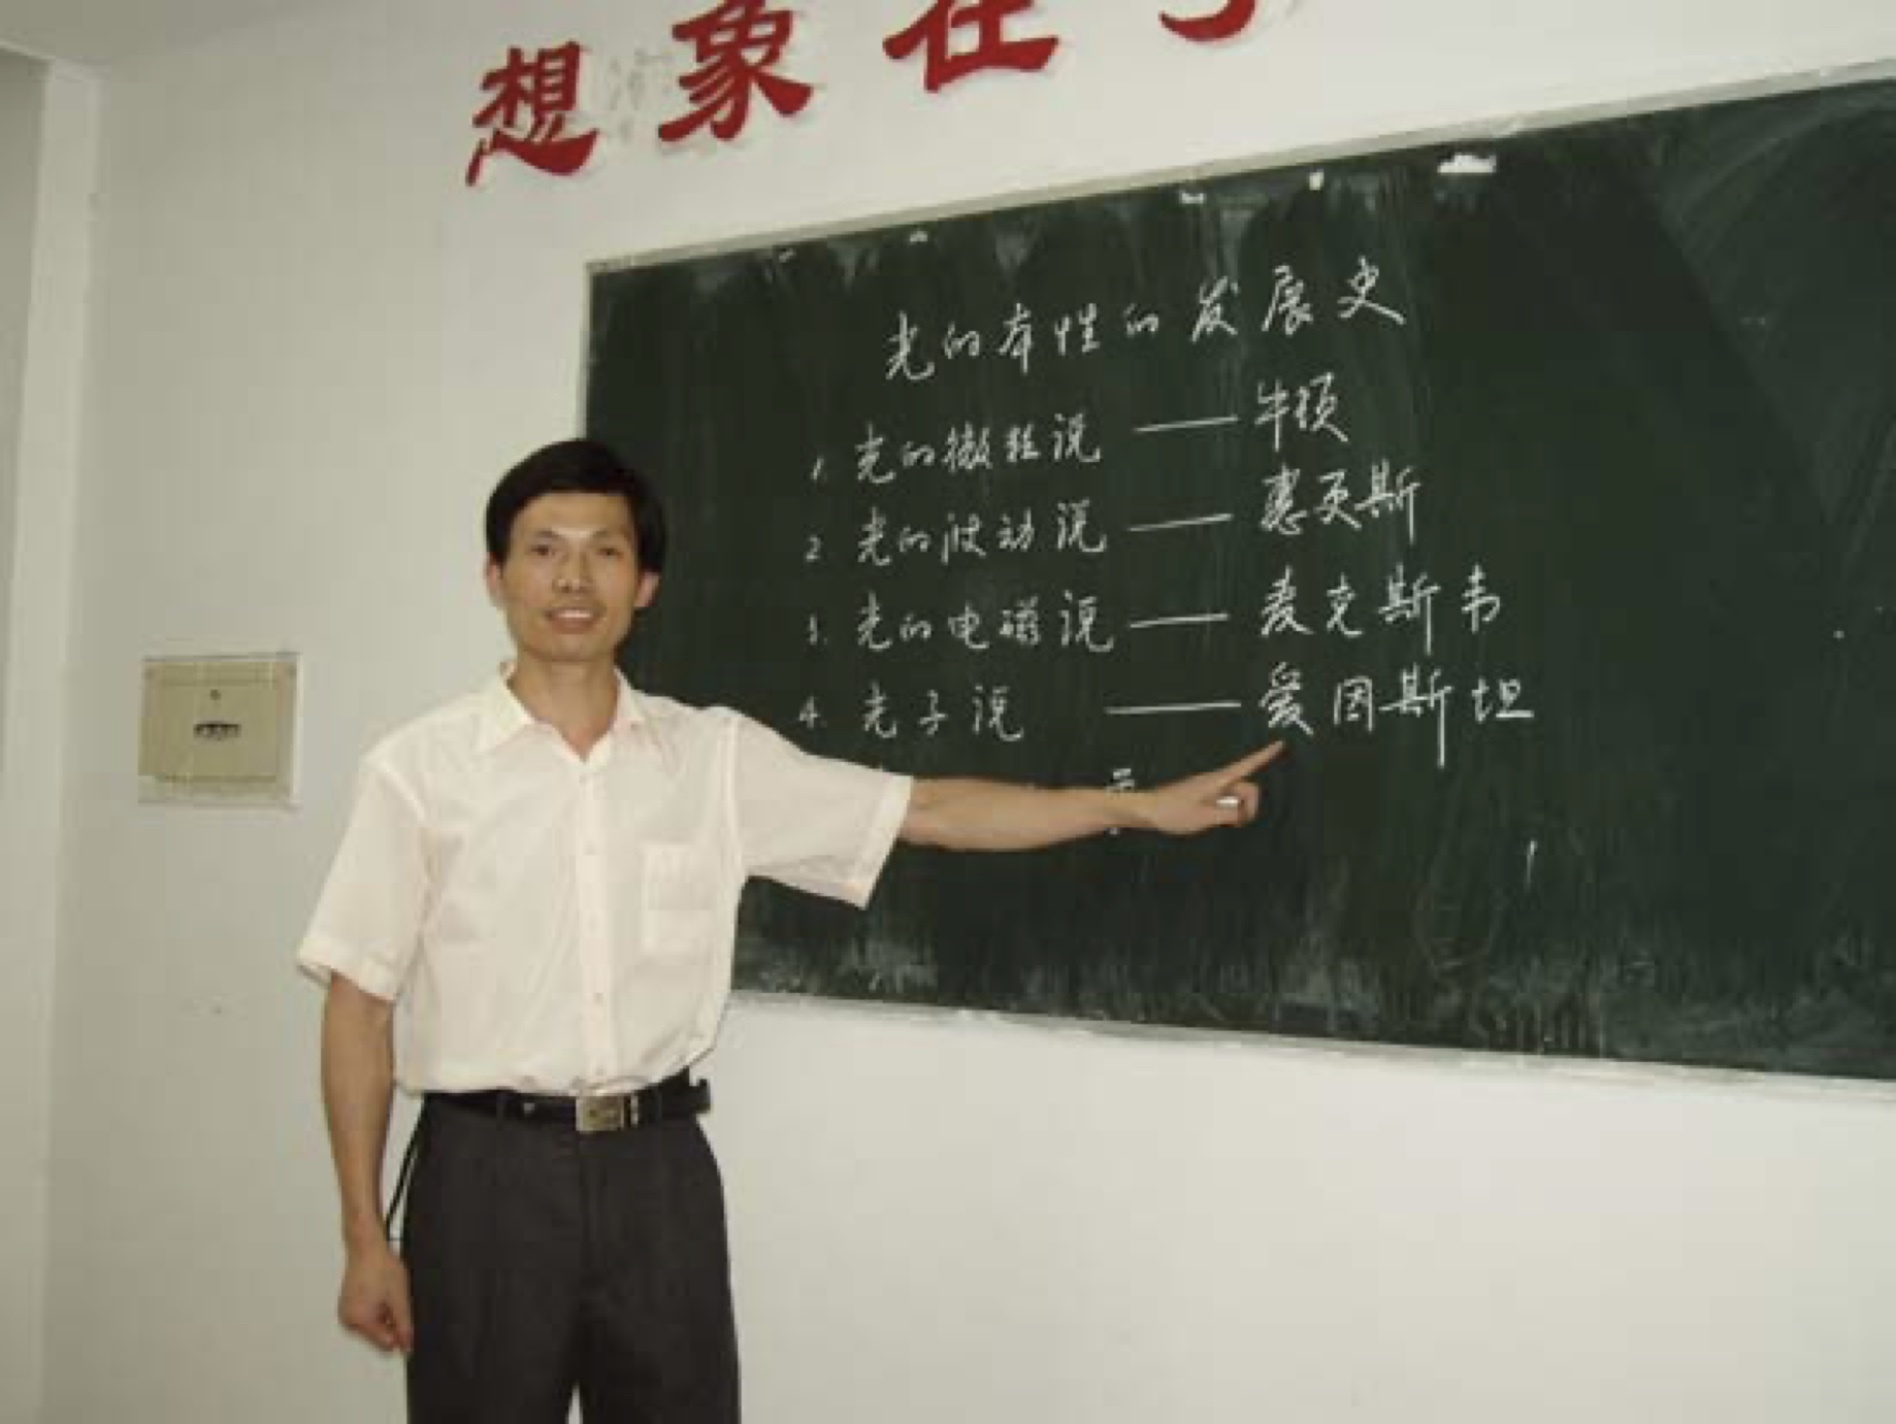 想象在于
光的本性的发展史
1. 光的微粒说 —— 牛顿
2. 光的波动说 —— 惠更斯
3. 光的电磁说 —— 麦克斯韦
4. 光子说 —— 爱因斯坦